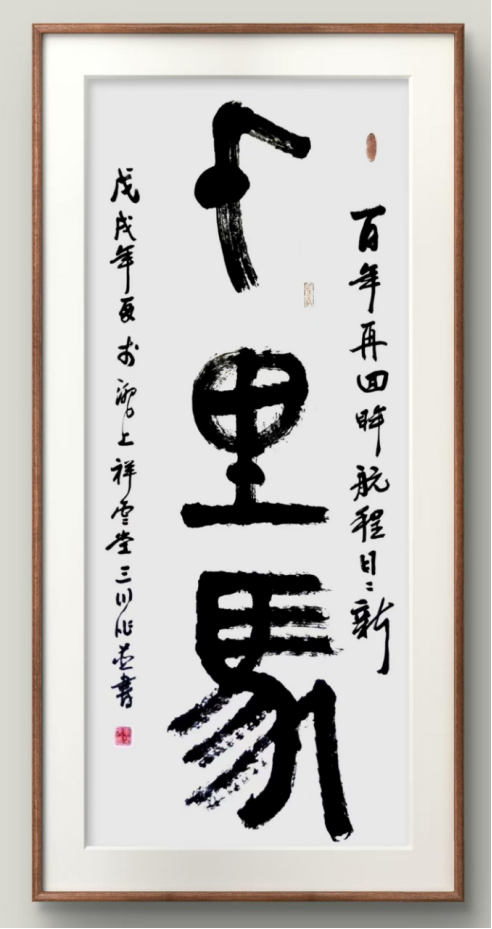 百年再回眸航程日〻新
千里馬
戊戌年夏於沪上祥雲堂三川作并書